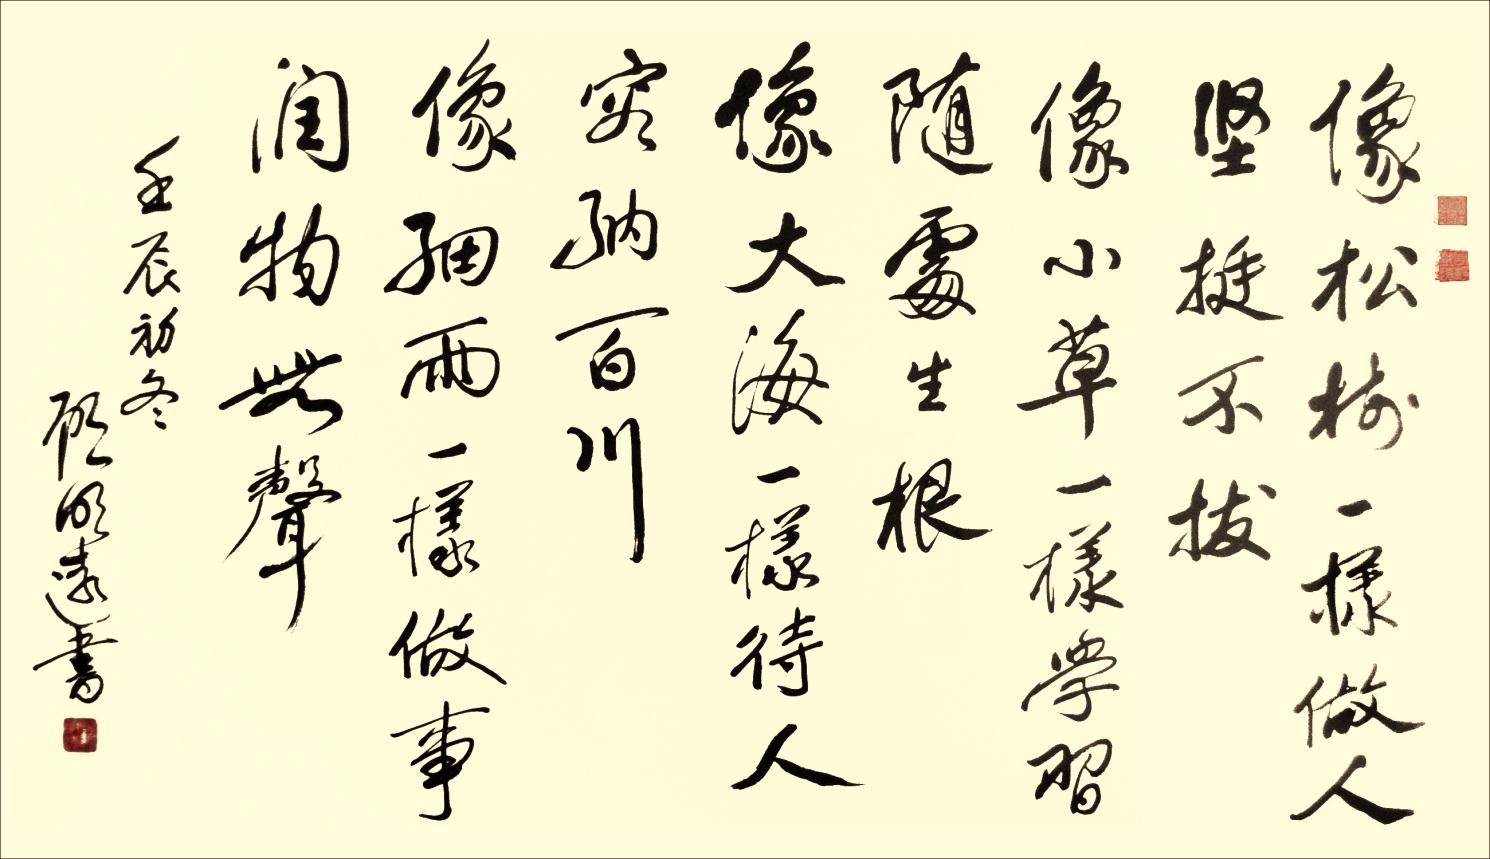 像松树一樣做人
坚挺不拔
像小草一樣学習
随處生根
像大海一樣待人
容納百川
像細雨一樣做事
润物無聲
壬辰初冬
顾明遠書